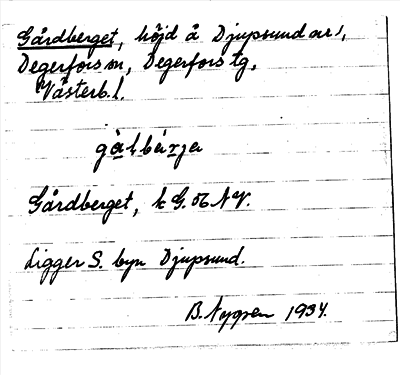 Gårdberget, höjd å Djupsund ar),
Degerfors sn, Degerfors tg,
Västerb. l.
gålbärja
Gårdberget, k G. 56 NV.
Ligger S. byn Djupsund.
B. Nygren 1934.